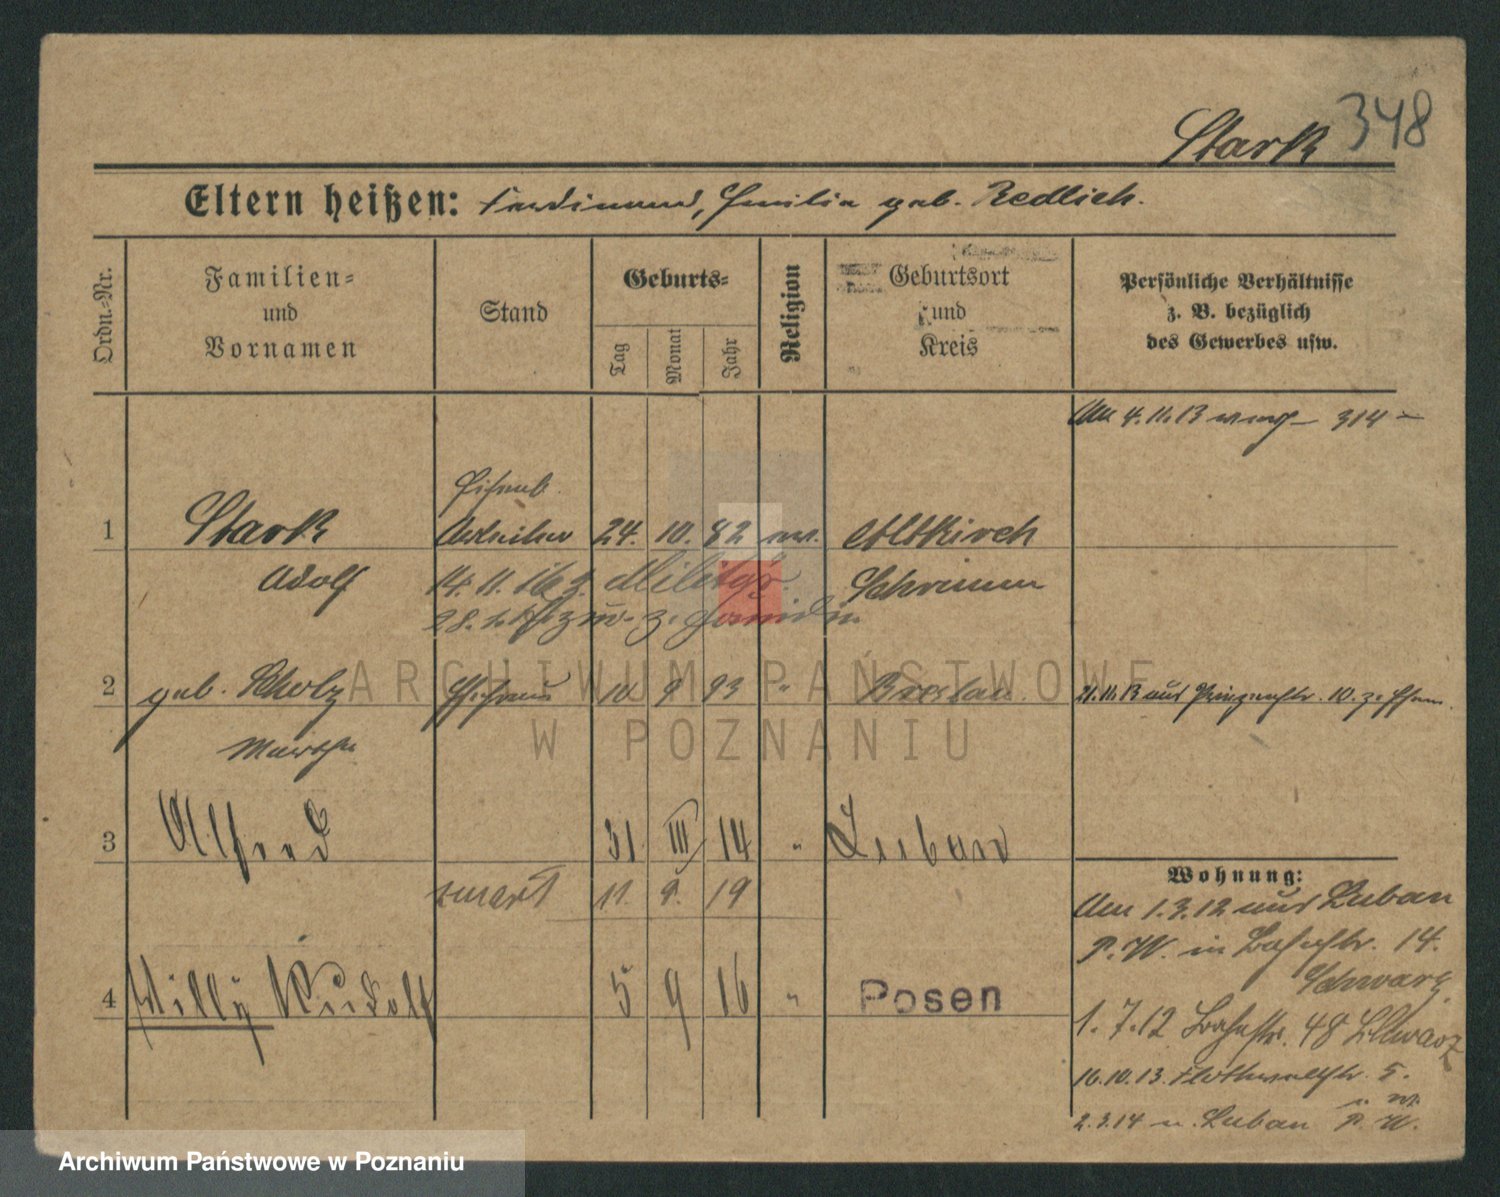 Stark 348
Eltern heißen: Ferdinand, Emilia geb. Redlich.
Ordn.-Nr.
Familien-
und
Vornamen
Stand
Geburts-
Tag
Monat
Jahr
Religion
Geburtsort
und
Kreis
Persönliche Verhältnisse
z. B. bezüglich
des Gewerbes usw.
Am 4.11.13 314
Eisenb.
1 Stark Arbeiter 24. 10. 82 Altkirch
Adolf 14.11.16 z. Militär. Schrimm
2 geb. Scholz Ehefrau 10 9 93 " Breslau 21.11.13 aus Prinzenstr. 10. z. Ehem.
Martha
3 Alfred 31 III 14 " Luban
Wohnung:
11. 9. 19
Am 1.3.12 aus Luban
P.W. in Bahnstr. 14.
Schwarz
4 Willy Rudolf 5 9 16 " Posen
1.7.12 Bahnstr. 48 Schwarz
16.10.13. Flottwellstr. 5.
2.3.14 n. Luban P. W.
ARCHIWUM PAŃSTWOWE
W POZNANIU
Archiwum Państwowe w Poznaniu